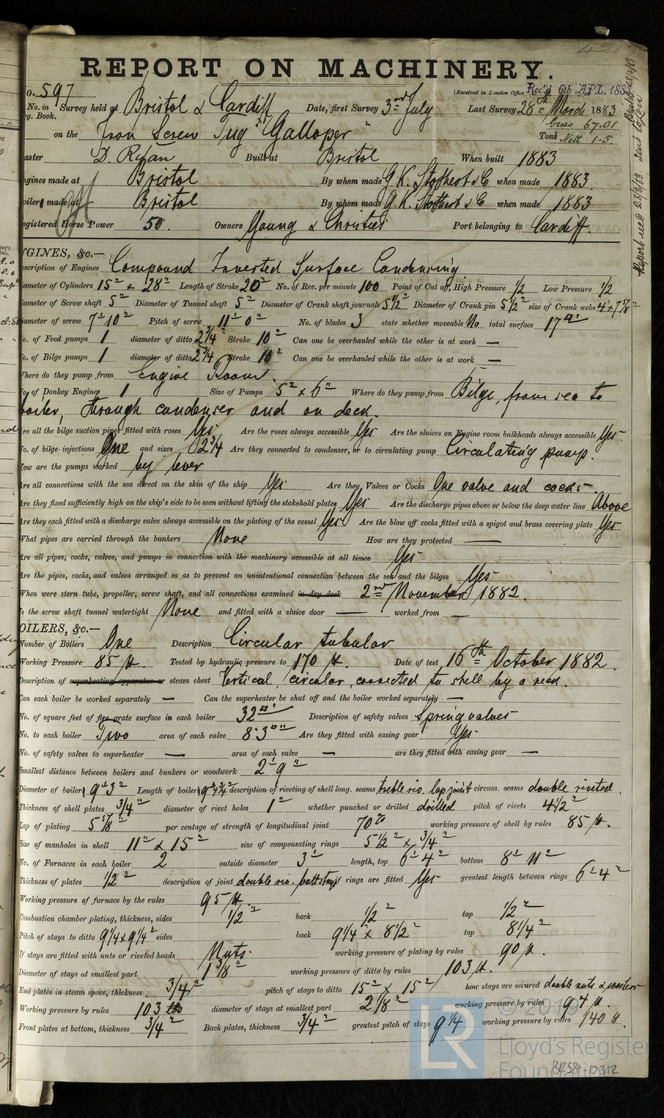 REPORT ON MACHINERY.
No. 597 (Received in London Office Rec'd 6th APL. 1883
No. in Survey held at Bristol & Cardiff Date, first Survey 3rd July Last Survey 28th March 1883
Reg. Book.
on the Iron Screw Tug "Galloper" Tons Gross 67.01 Nett 1.5
Master D. Regan Built at Bristol When built 1883
Engines made at Bristol By whom made G. K. Stothert & Co when made 1883
Boilers made at Bristol By whom made G. K. Stothert & Co when made 1883
Registered Horse Power 50. Owners Young & Christie Port belonging to Cardiff.
ENGINES, &c.—
Description of Engines Compound Inverted Surface Condensing
Diameter of Cylinders 15" & 28" Length of Stroke 20" No. of Rev. per minute 100 Point of Cut off, High Pressure 1/2 Low Pressure 1/2
Diameter of Screw shaft 5" Diameter of Tunnel shaft 5" Diameter of Crank shaft journals 5 1/2" Diameter of Crank pin 5 1/2" size of Crank webs 4" x 7 7/8"
Diameter of screw 7' 10" Pitch of screw 11' 0" No. of blades 3 state whether moveable No total surface 17
No. of Feed pumps 1 diameter of ditto 2 3/4" Stroke 10" Can one be overhauled while the other is at work —
No. of Bilge pumps 1 diameter of ditto 2 3/4" Stroke 10" Can one be overhauled while the other is at work —
Where do they pump from Engine Room.
No. of Donkey Engines 1 Size of Pumps 5" x 6" Where do they pump from Bilge, from sea to
boiler, through condenser and on deck.
Are all the bilge suction pipes fitted with roses Yes Are the roses always accessible Yes Are the sluices on Engine room bulkheads always accessible Yes
No. of bilge injections One and size 2 3/4 Are they connected to condenser, or to circulating pump Circulating pump.
How are the pumps worked by lever
Are all connections with the sea direct on the skin of the ship Yes Are they Valves or Cocks One valve and cocks
Are they fixed sufficiently high on the ship's side to be seen without lifting the stokehold plates Yes Are the discharge pipes above or below the deep water line Above
Are they each fitted with a discharge valve always accessible on the plating of the vessel Yes Are the blow off cocks fitted with a spigot and brass covering plate Yes
What pipes are carried through the bunkers None How are they protected —
Are all pipes, cocks, valves, and pumps in connection with the machinery accessible at all times Yes
Are the pipes, cocks, and valves arranged so as to prevent an unintentional connection between the sea and the bilges Yes
When were stern tube, propeller, screw shaft, and all connections examined in dry dock 2nd November 1882.
Is the screw shaft tunnel watertight None and fitted with a sluice door — worked from —
BOILERS, &c.—
Number of Boilers One Description Circular tubular
Working Pressure 85 lb. Tested by hydraulic pressure to 170 lb. Date of test 16th October 1882.
Description of superheating apparatus or steam chest Vertical, circular, connected to shell by a neck.
Can each boiler be worked separately — Can the superheater be shut off and the boiler worked separately —
No. of square feet of fire grate surface in each boiler 32 Description of safety valves Spring valves
No. to each boiler Two area of each valve 8.3 Are they fitted with easing gear Yes
No. of safety valves to superheater — area of each valve — are they fitted with easing gear —
Smallest distance between boilers and bunkers or woodwork 2' 9"
Diameter of boilers 9' 3" Length of boilers description of riveting of shell long. seams treble riv. lap joint circum. seams double riveted.
Thickness of shell plates 3/4" diameter of rivet holes 1" whether punched or drilled drilled pitch of rivets 4 1/2"
Lap of plating per centage of strength of longitudinal joint 70 % working pressure of shell by rules 85 lb.
Size of manholes in shell 11" x 15" size of compensating rings 5 1/2" x 3/4"
No. of Furnaces in each boiler 2 outside diameter 3' length, top 6' 4" bottom 8' 11"
Thickness of plates 1/2" description of joint double riv. butt strap if rings are fitted Yes greatest length between rings 6' 4"
Working pressure of furnace by the rules 95 lb
Combustion chamber plating, thickness, sides 1/2" back 1/2" top 1/2"
Pitch of stays to ditto 9 1/4 x 9 1/4" sides back 9 1/4" x 8 1/2" top 8 1/4"
If stays are fitted with nuts or riveted heads Nuts. working pressure of plating by rules 90 lb.
Diameter of stays at smallest part 1 3/8" working pressure of ditto by rules 103 lb.
End plates in steam space, thickness 3/4" pitch of stays to ditto 15" x 15" how stays are secured double nuts & washers
Working pressure by rules 103 lb diameter of stays at smallest part 2 1/8" working pressure by rules 94 lb.
Front plates at bottom, thickness 3/4" Back plates, thickness 3/4" greatest pitch of stays 9 1/4 working pressure by rules 140 lb.
LR
© 2019
Lloyd's Register
Foundation